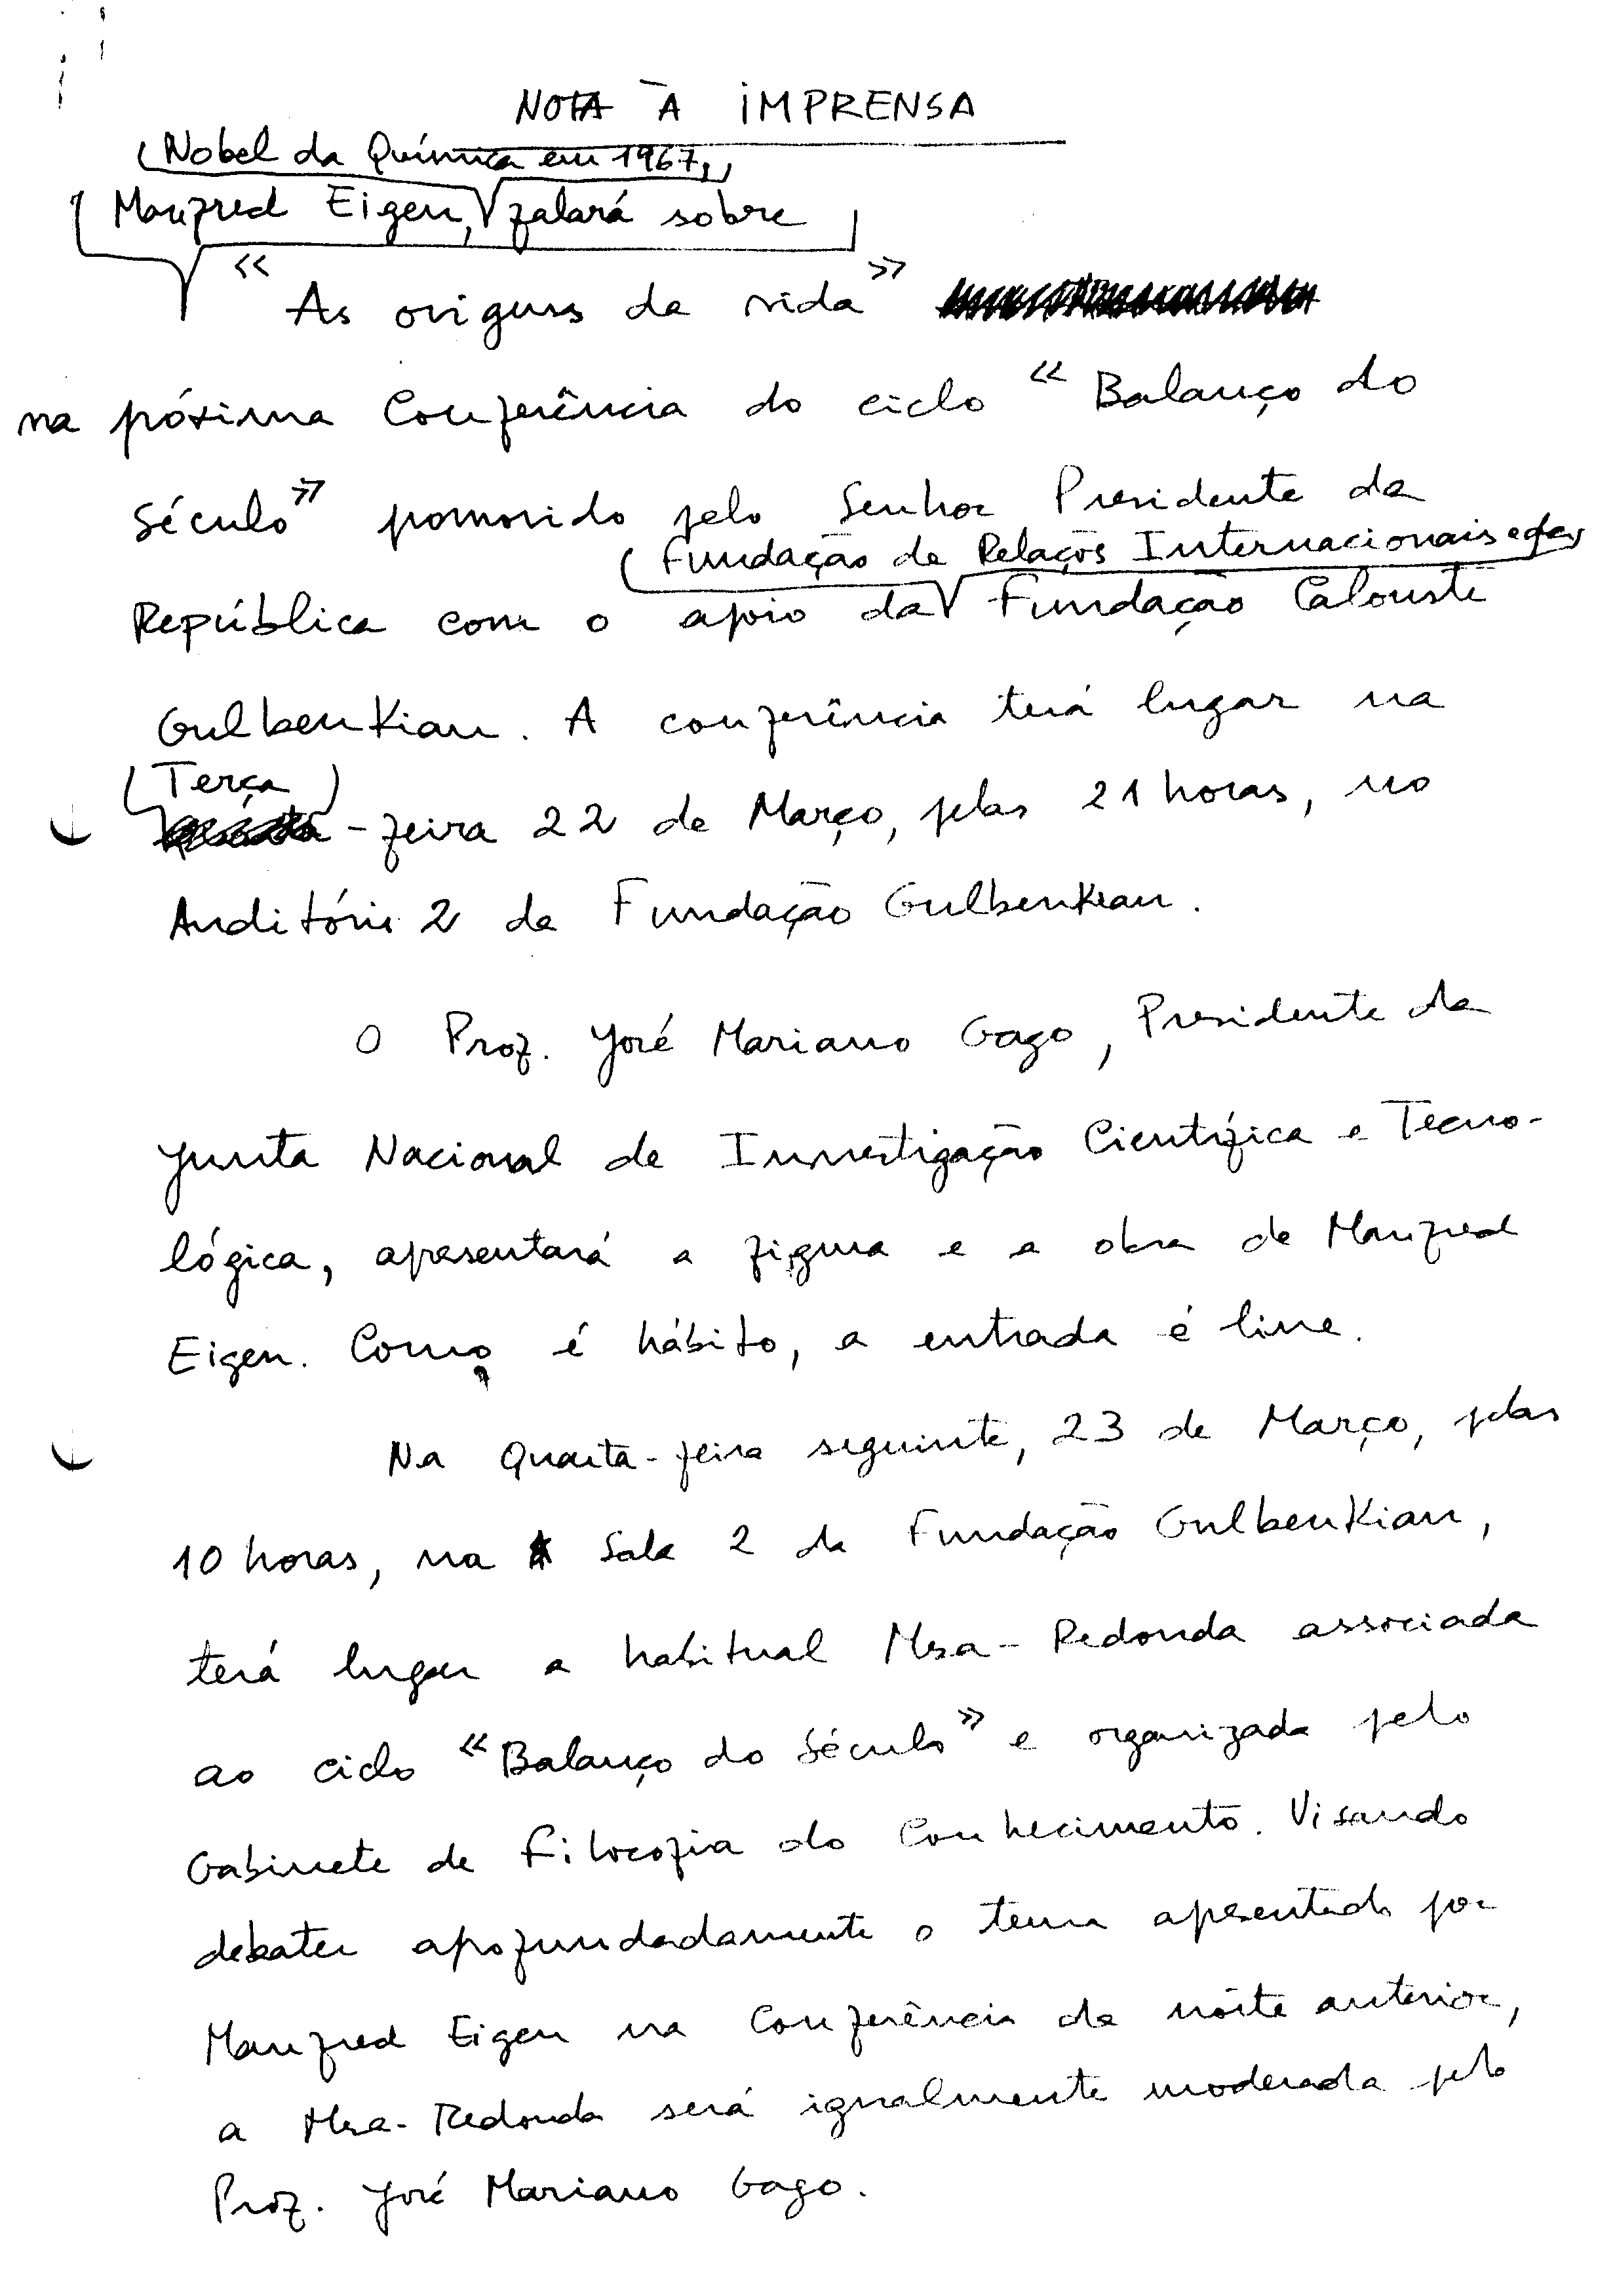 NOTA À IMPRENSA
Nobel da Química em 1967,
Manfred Eigen, falará sobre
"As origens da vida"
na próxima Conferência do ciclo "Balanço do
Século" promovido pelo Senhor Presidente da
Fundação de Relações Internacionais e da
República com o apoio da Fundação Calouste
Gulbenkian. A conferência terá lugar na
Terça
-feira 22 de Março, pelas 21 horas, no
Auditório 2 da Fundação Gulbenkian.
O Prof. José Mariano Gago, Presidente da
Junta Nacional de Investigação Científica e Tecno-
lógica, apresentará a figura e a obra de Manfred
Eigen. Como é hábito, a entrada é livre.
Na Quarta-feira seguinte, 23 de Março, pelas
10 horas, na Sala 2 da Fundação Gulbenkian,
terá lugar a habitual Mesa-Redonda associada
ao ciclo "Balanço do Século" e organizada pelo
Gabinete de Filosofia do Conhecimento. Visando
debater aprofundadamente o tema apresentado por
Manfred Eigen na Conferência da noite anterior,
a Mesa-Redonda será igualmente moderada pelo
Prof. José Mariano Gago.